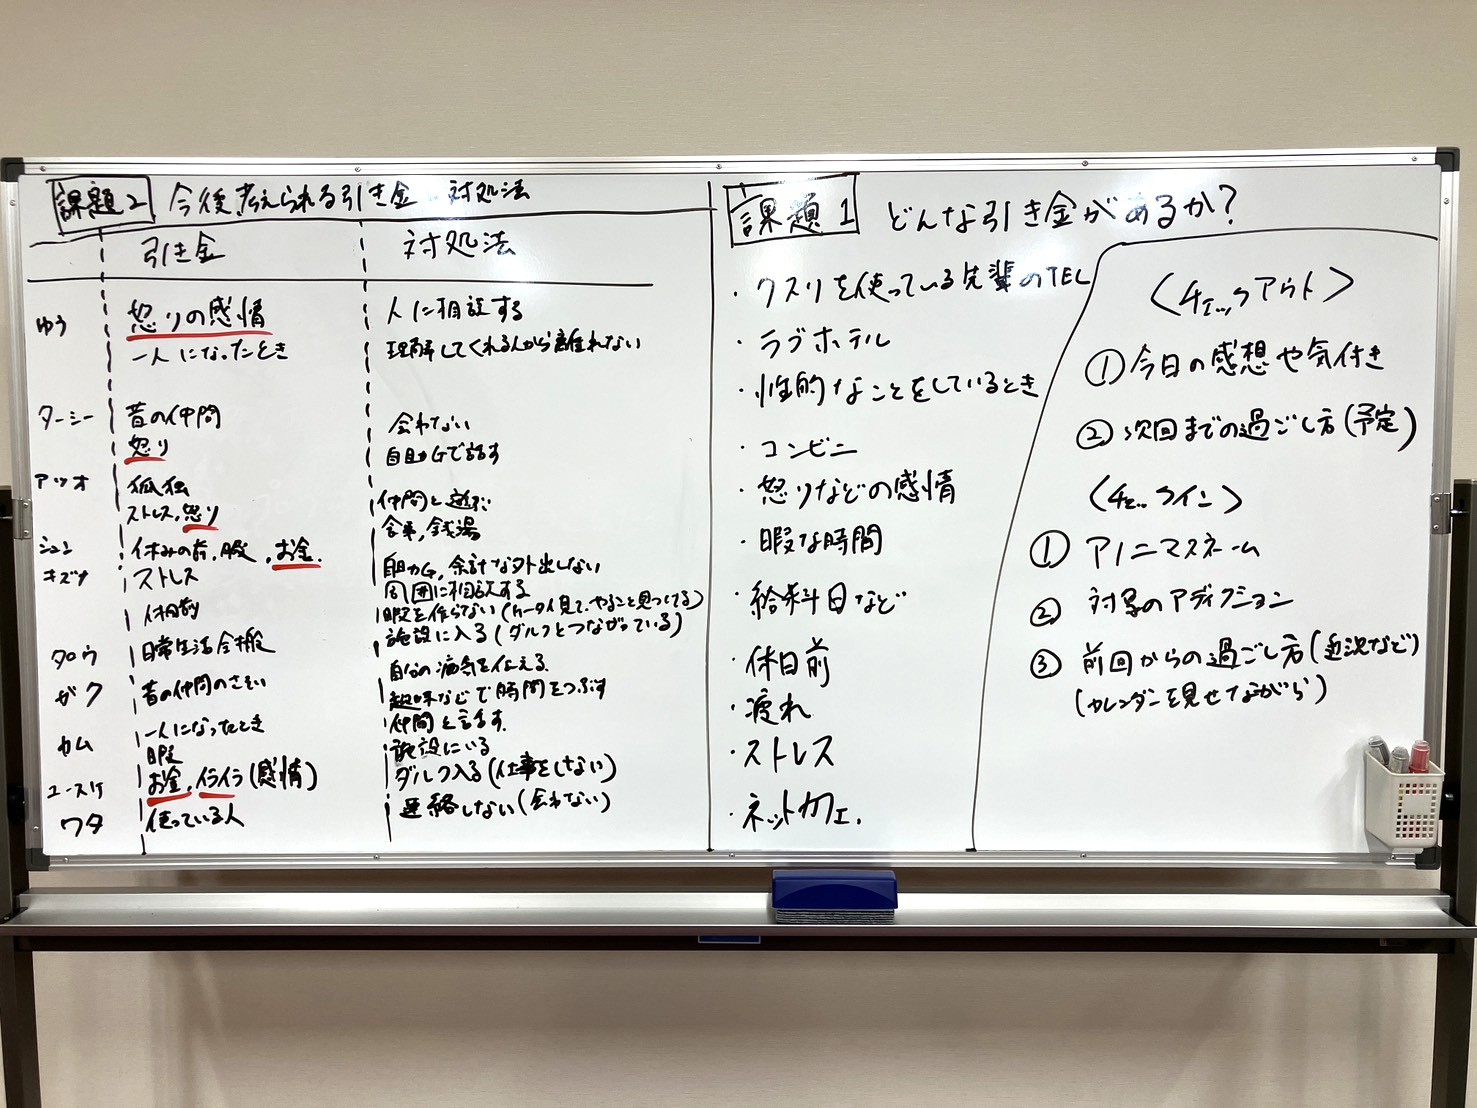 課題2 今後考えられる引き金 対処法
引き金 対処法
ゆう 怒りの感情 人に相談する
一人になったとき 理解してくれる人から離れない
ターシー 昔の仲間 会わない
怒り 自助Gで話す
アツオ 孤独 仲間と遊ぶ
ストレス,怒り 食事,銭湯
シュン 休みの前,暇,お金. 自助G,余計な外出しない
キズナ ストレス 周囲に相談する
休日前 暇を作らない(ケータイ見て,やること見つける)
施設に入る(ダルクとつながっている)
タロウ 日常生活全般 自分の病気を伝える
ザク 昔の仲間のさそい 趣味などで時間をつぶす
仲間と話す.
カム 一人になったとき 施設にいる
暇
ユースケ お金,イライラ(感情) ダルク入る(仕事をしない)
ワタ 使っている人 連絡しない(会わない)
課題1 どんな引き金があるか?
・クスリを使っている先輩のTEL
・ラブホテル
・性的なことをしているとき
・コンビニ
・怒りなどの感情
・暇な時間
・給料日など
・休日前
・疲れ
・ストレス
・ネットカフェ.
〈チェックアウト〉
①今日の感想や気付き
②次回までの過ごし方(予定)
〈チェックイン〉
① アノニマスネーム
② 対象のアディクション
③ 前回からの過ごし方(近況など)
(カレンダーを見せながら)